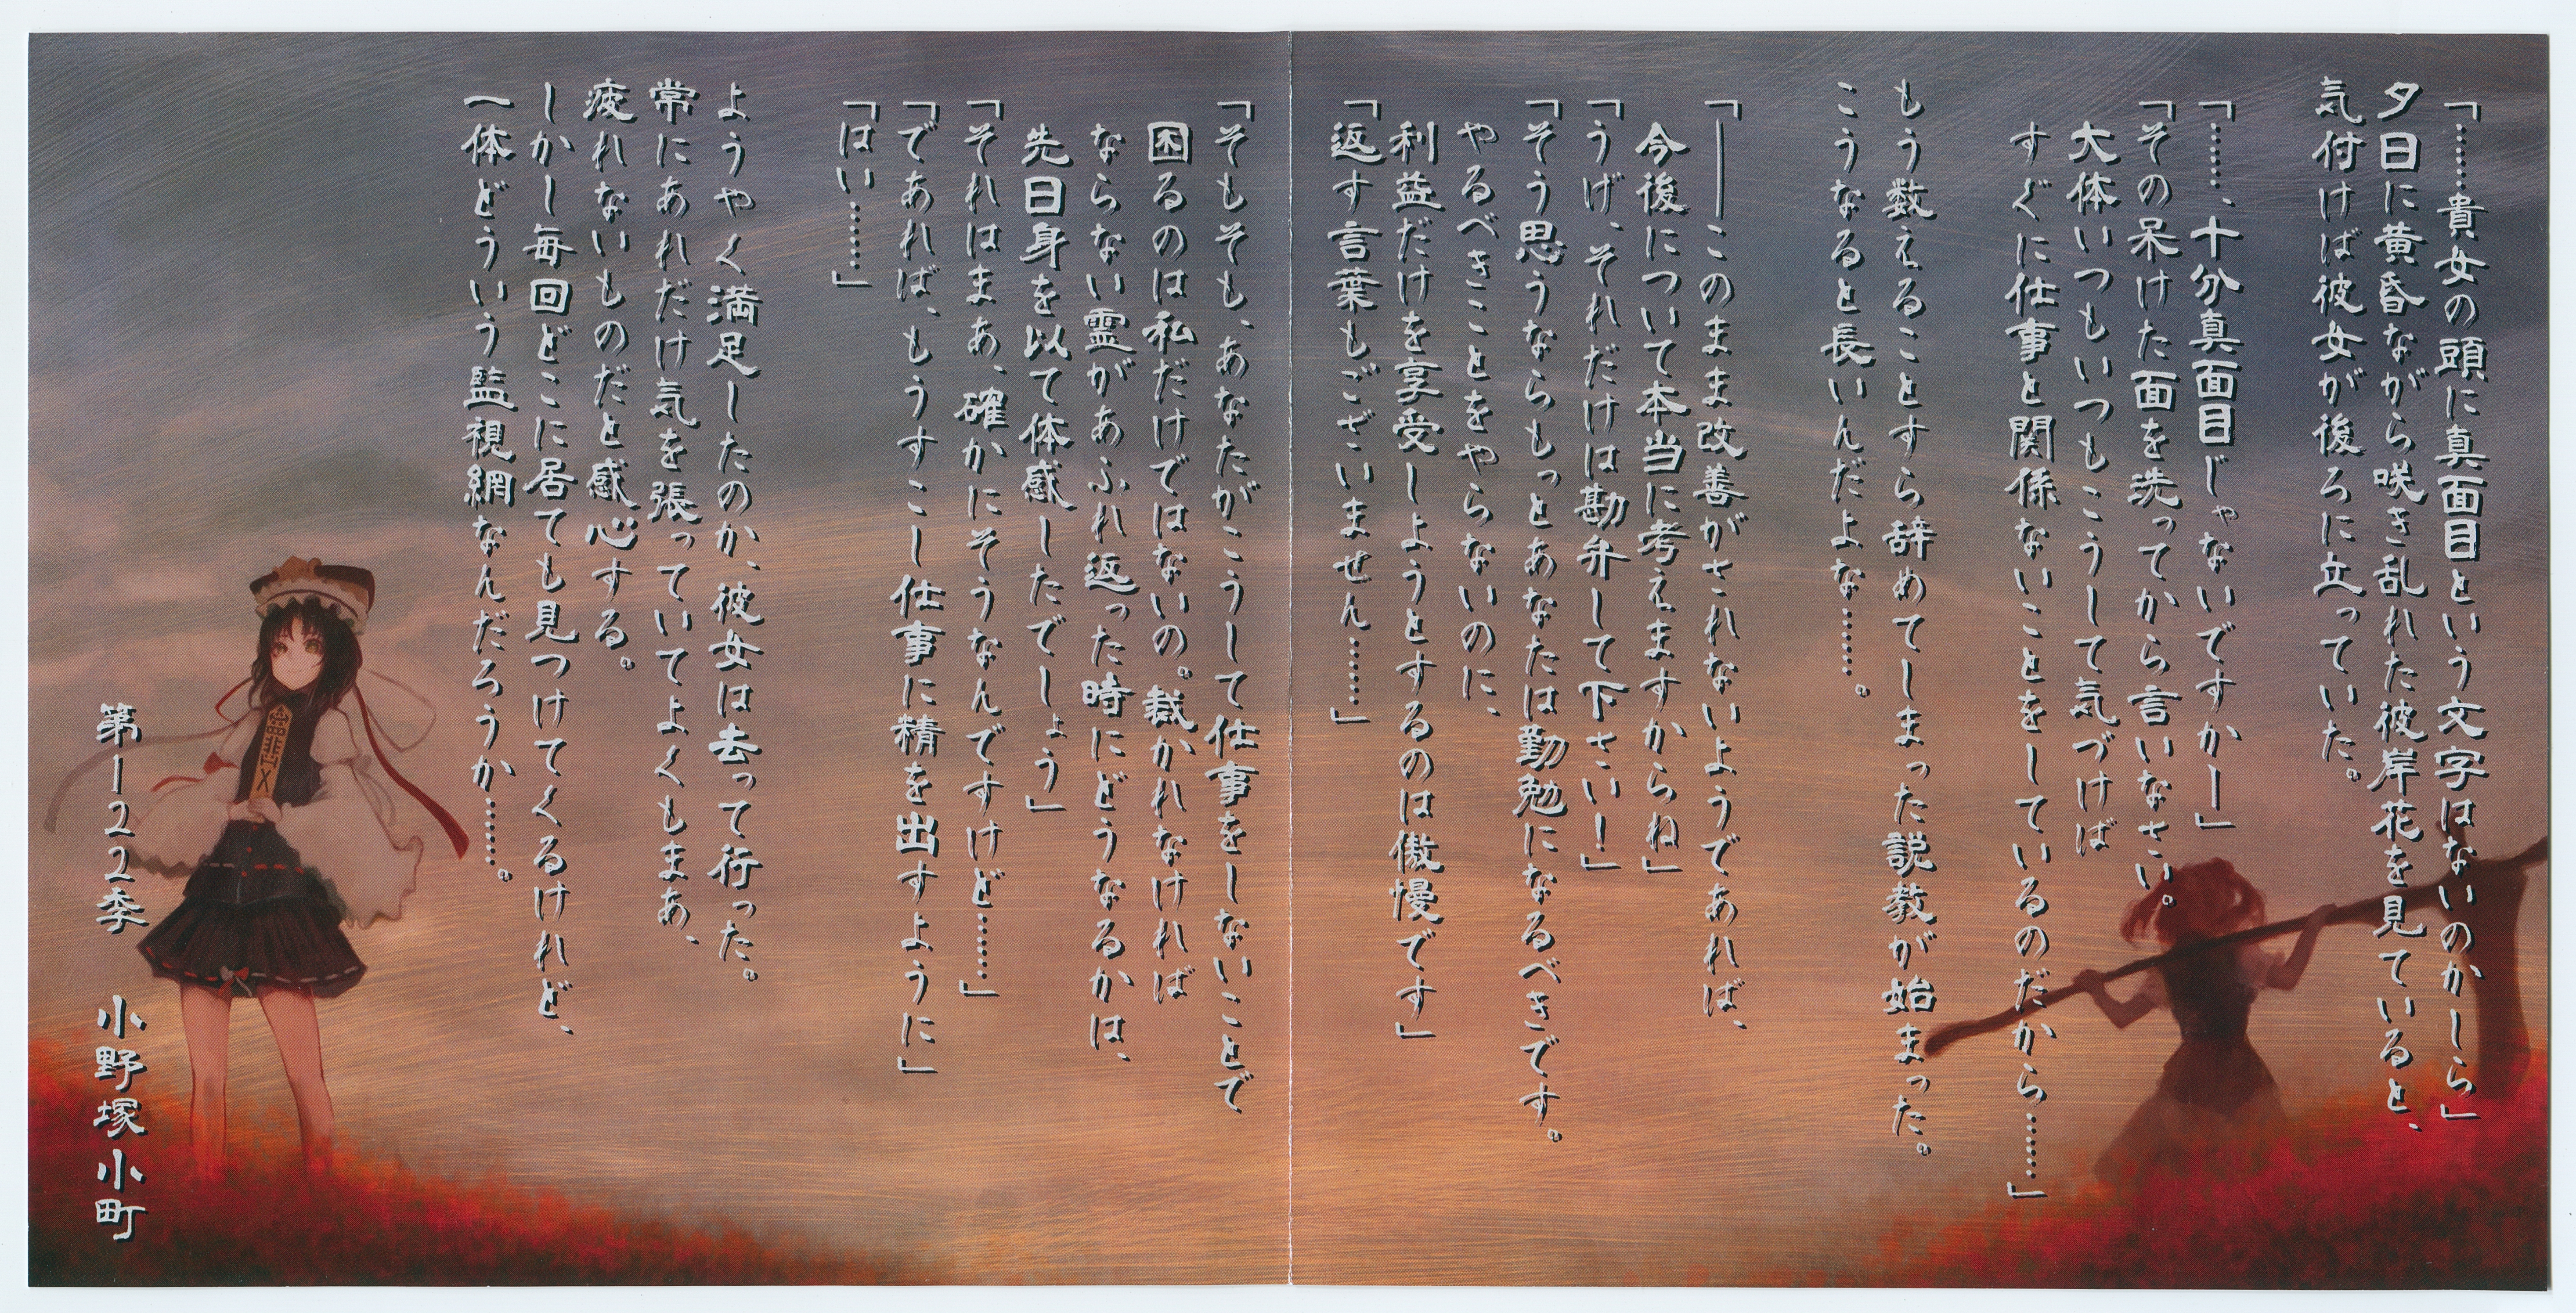 「……貴女の頭に真面目という文字はないのかしら」
夕日に黄昏ながら咲き乱れた彼岸花を見ていると、
気付けば彼女が後ろに立っていた。
「……、十分真面目じゃないですかー」
「その呆けた面を洗ってから言いなさい。
大体いつもいつもこうして気づけば
すぐに仕事と関係ないことをしているのだから……」
もう数えることすら辞めてしまった説教が始まった。
こうなると長いんだよな……。
「――このまま改善がされないようであれば、
今後について本当に考えますからね」
「うげ、それだけは勘弁して下さい！」
「そう思うならもっとあなたは勤勉になるべきです。
やるべきことをやらないのに、
利益だけを享受しようとするのは傲慢です」
「返す言葉もございません……」
「そもそも、あなたがこうして仕事をしないことで
困るのは私だけではないの。裁かれなければ
ならない霊があふれ返った時にどうなるかは、
先日身を以て体感したでしょう」
「それはまあ、確かにそうなんですけど……」
「であれば、もうすこし仕事に精を出すように」
「はい……」
ようやく満足したのか、彼女は去って行った。
常にあれだけ気を張っていてよくもまあ、
疲れないものだと感心する。
しかし毎回どこに居ても見つけてくるけれど、
一体どういう監視網なんだろうか……。
第122季　小野塚小町